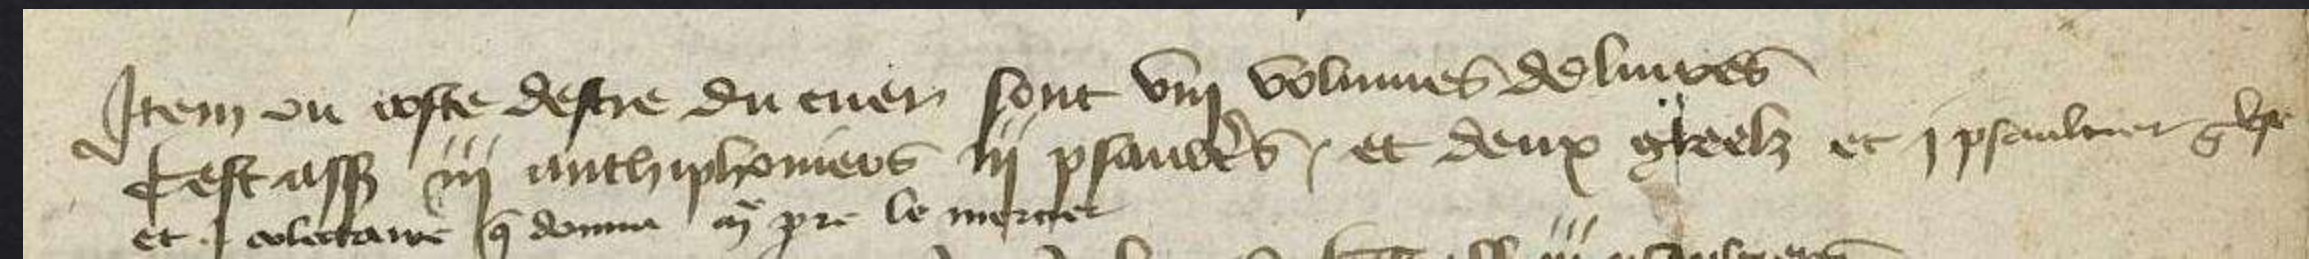 Item ou coste destre du cuer sont viij volumes de liures
Cest assß iiij anthiphoniers iij psautrs / et deux greelz et j psaultier
et j colectaire q donna mr pre le mercier